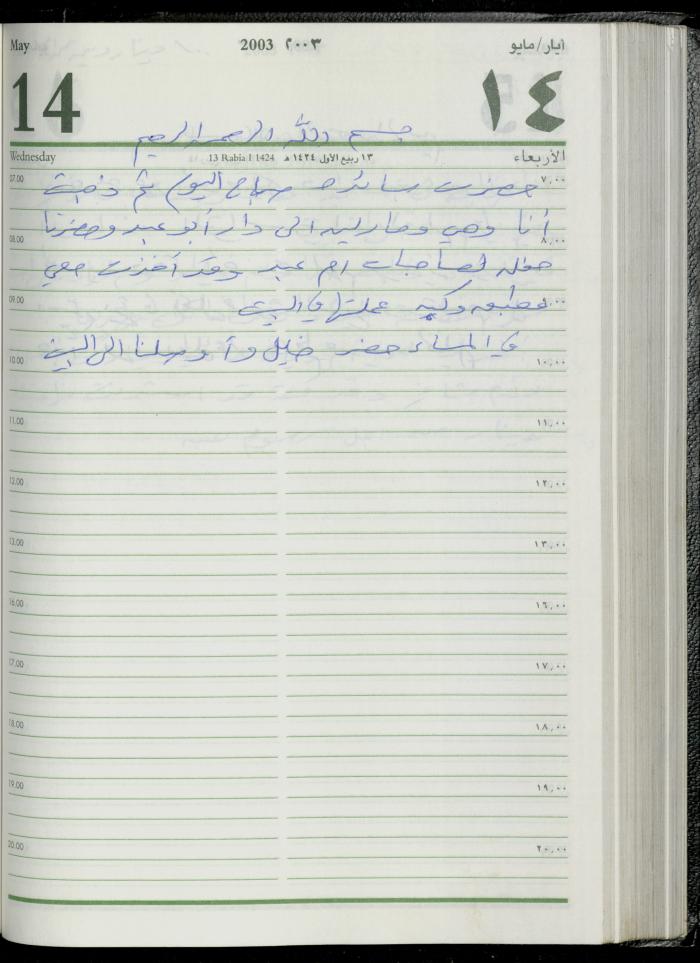 May 2003 ٢٠٠٣ أيار/مايو
14 ١٤
بسم الله الرحمن الرحيم
Wednesday 13 Rabia I 1424 ١٣ ربيع الأول ١٤٢٤ هـ الأربعاء
07.00 ٧,٠٠
حضرت سائده صباح اليوم ثم ذهبت
أنا وهي ومارليه الى دار أبو عبد وحضرنا
08.00 ٨,٠٠
حفله لصاحبات ام عبد وقد أخذت معي
09.00 ٩,٠٠
مطبقه وكبه عملتها في البيت
في المساء حضر خليل و أوصلنا الى البيت
10.00 ١٠,٠٠
11.00 ١١,٠٠
12.00 ١٢,٠٠
13.00 ١٣,٠٠
16.00 ١٦,٠٠
17.00 ١٧,٠٠
18.00 ١٨,٠٠
19.00 ١٩,٠٠
20.00 ٢٠,٠٠